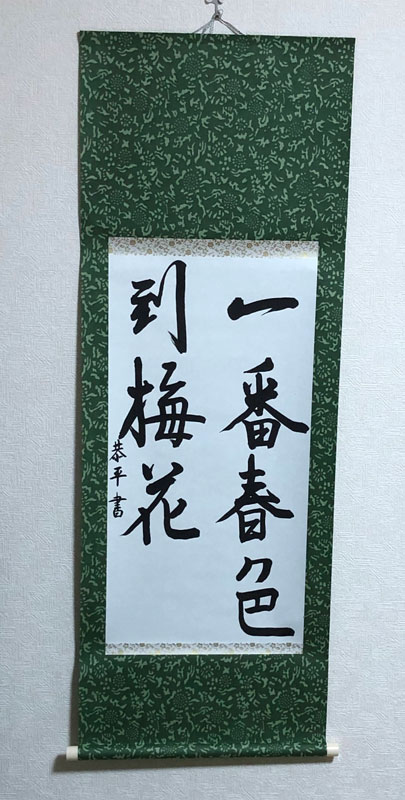 一番春色
到梅花
恭平書